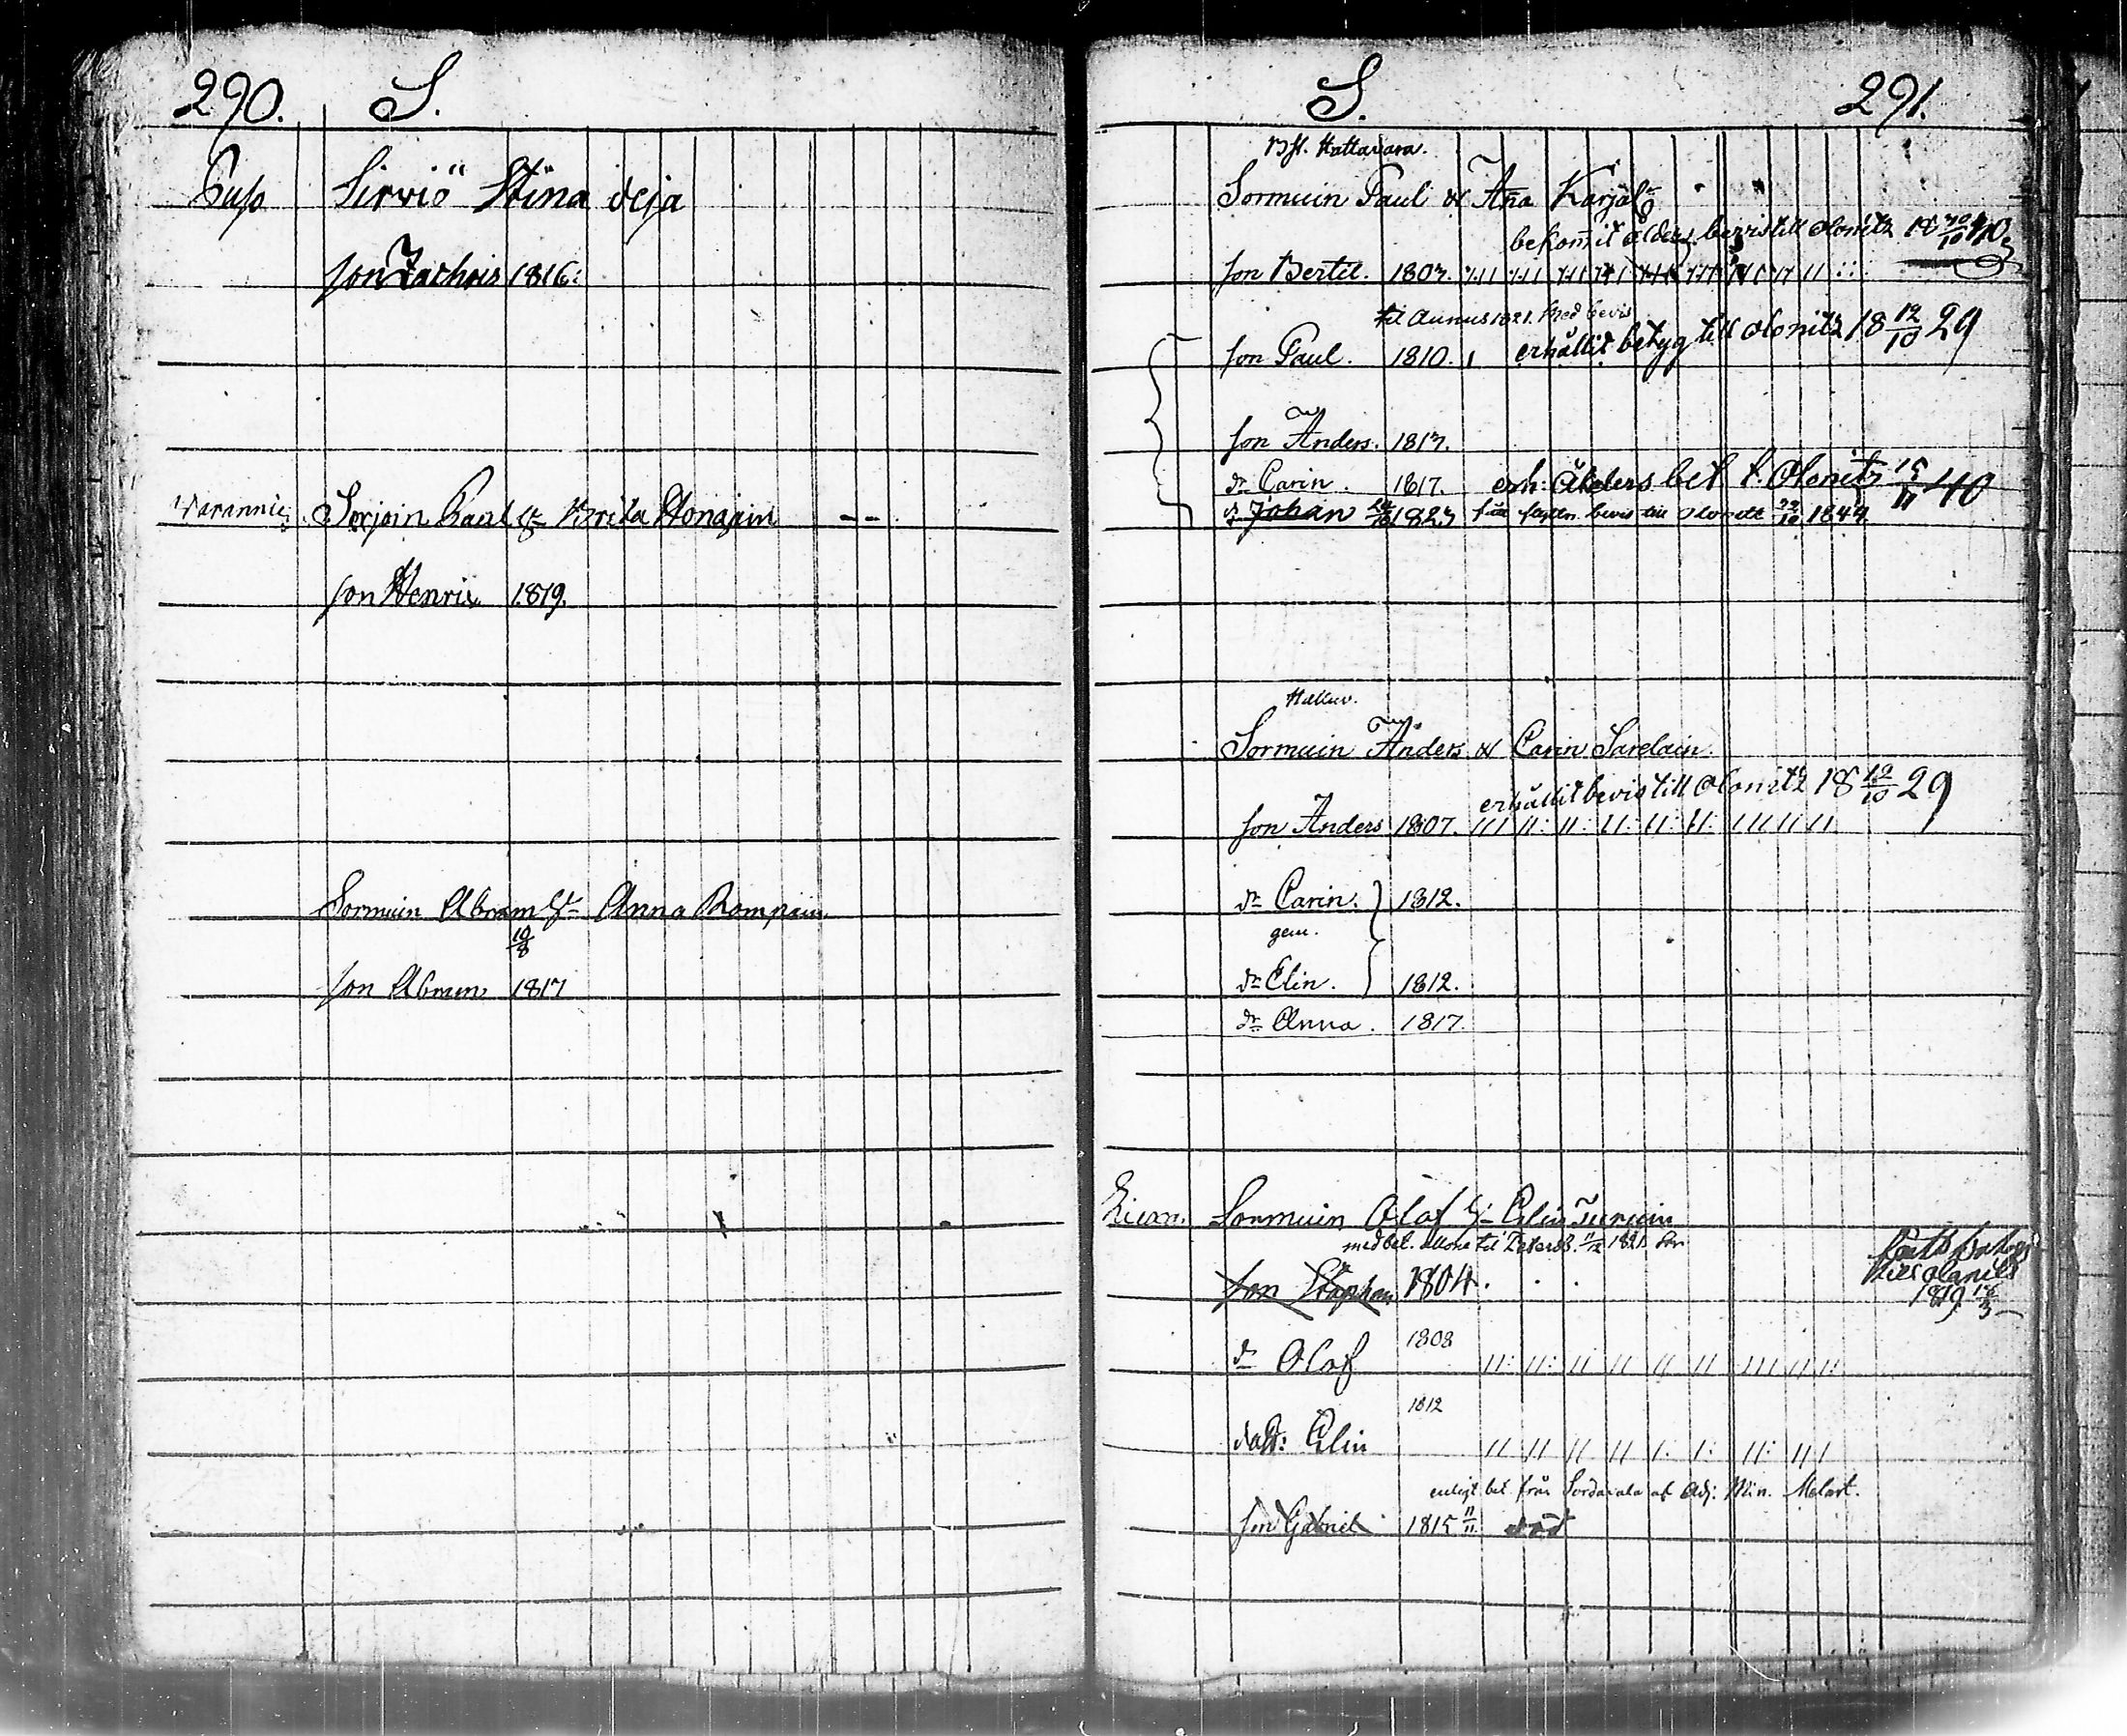 290. S.
Sirviö Stina deja
son Zachris 1816.
Sorjoin Paul & Brita Honojain
son Henric 1819.
Sormuin Abram & Anna Rompain
10/8
son Abram 1817
S. 291.
Hattavara.
Sormuin Paul & Ana Karjal
bekom̅it ålders bevis till Olonitz 18 30/10 40
son Bertil. 1803.
til Aunus 1821. Med bevis
son Paul. 1810. erhållit betyg till Olonitz 18 12/10 29
son Anders. 1813.
dr Carin. 1817. erh: Ålders bet t. Olonitz 15/11 40
Johan 1823 bevis till 1844
Hattav.
Sormuin Anders & Carin Sarelain.
erhållit bevis till Olonitz 18 12/10 29
son Anders 1807.
dr Carin. 1812.
gem.
dr Elin. 1812.
dr Anna. 1817.
Sormuin Olof & Elin Turuin
med bet. til Petersb. 11/12 1821
son Stephan 1804.
till Olanits
1819
dr Olof 1808
1812
dott: Elin
enligt bet. från Sordavala af Adj: Min. Melart.
son Gabriel 1815 11/11 död